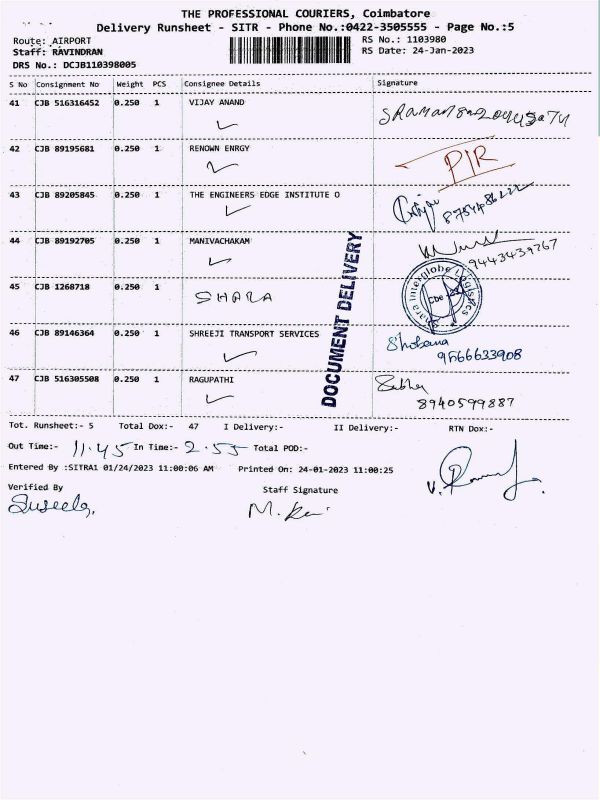 THE PROFESSIONAL COURIERS, Coimbatore
Delivery Runsheet - SITR - Phone No.:0422-3505555 - Page No.:5
Route: AIRPORT RS No.: 1103980
Staff: RAVINDRAN RS Date: 24-Jan-2023
DRS No.: DCJB110398005
S No Consignment No Weight PCS Consignee Details Signature
41 CJB 516316452 0.250 1 VIJAY ANAND
42 CJB 89195681 0.250 1 RENOWN ENRGY PIR
43 CJB 89205845 0.250 1 THE ENGINEERS EDGE INSTITUTE O
44 CJB 89192705 0.250 1 MANIVACHAKAM 9443439767
45 CJB 1268718 0.250 1 SHARA
Shara Interglobe Logistics
CBE
46 CJB 89146364 0.250 1 SHREEJI TRANSPORT SERVICES Shobana
9566633908
47 CJB 516305508 0.250 1 RAGUPATHI
8940599887
DOCUMENT DELIVERY
Tot. Runsheet:- 5 Total Dox:- 47 I Delivery:- II Delivery:- RTN Dox:-
Out Time:- 11.45 In Time:- 2.55 Total POD:-
Entered By :SITRA1 01/24/2023 11:00:06 AM Printed On: 24-01-2023 11:00:25
Verified By Staff Signature
Suseela.